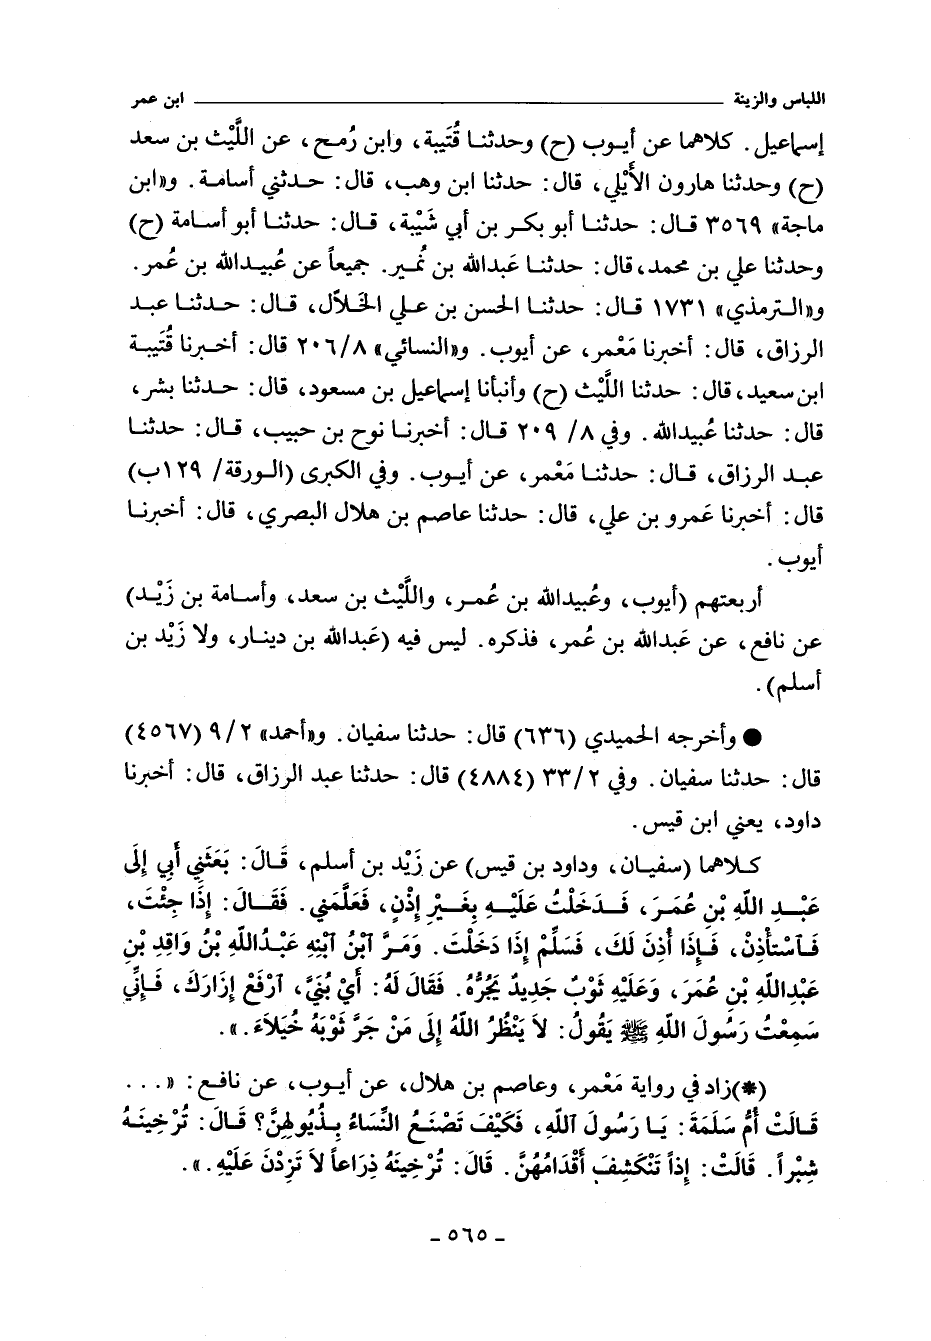 اللباس والزينة ـــــــــــــــــــــــــــــــــــــــــ ابن عمر
إسماعيل. كلاهما عن أيوب (ح) وحدثنا قُتَيبة، وابن رُمح، عن اللَّيْث بن سعد
(ح) وحدثنا هارون الأَيْلي، قال: حدثنا ابن وهب، قال: حدثني أسامة. و«ابن
ماجة» ٣٥٦٩ قال: حدثنا أبو بكر بن أبي شَيْبة، قال: حدثنا أبو أسامة (ح)
وحدثنا علي بن محمد، قال: حدثنا عَبدالله بن نُمير. جميعاً عن عُبيدالله بن عُمر.
و«الترمذي» ١٧٣١ قال: حدثنا الحسن بن علي الخَلاَّل، قال: حدثنا عبد
الرزاق، قال: أخبرنا مَعْمر، عن أيوب. و«النسائي» ٢٠٦/٨ قال: أخبرنا قُتَيبة
ابن سعيد، قال: حدثنا اللَّيْث (ح) وأنبأنا إسماعيل بن مسعود، قال: حدثنا بشر،
قال: حدثنا عُبيدالله. وفي ٨/ ٢٠٩ قال: أخبرنا نوح بن حبيب، قال: حدثنا
عبد الرزاق، قال: حدثنا مَعْمر، عن أيوب. وفي الكبرى (الورقة/ ١٢٩ب)
قال: أخبرنا عَمرو بن علي، قال: حدثنا عاصم بن هلال البصري، قال: أخبرنا
أيوب.
أربعتهم (أيوب، وعُبيدالله بن عُمر، واللَّيْث بن سعد، وأسامة بن زَيْد)
عن نافع، عن عَبدالله بن عُمر، فذكره. ليس فيه (عَبدالله بن دينار، ولا زَيْد بن
أسلم).
● وأخرجه الحميدي (٦٣٦) قال: حدثنا سفيان. و«أحمد» ٩/٢ (٤٥٦٧)
قال: حدثنا سفيان. وفي ٣٣/٢ (٤٨٨٤) قال: حدثنا عبد الرزاق، قال: أخبرنا
داود، يعني ابن قيس.
كلاهما (سفيان، وداود بن قيس) عن زَيْد بن أسلم، قَالَ: بَعَثَنِي أَبِي إِلَى
عَبْدِ اللهِ بْنِ عُمَرَ، فَدَخَلْتُ عَلَيْهِ بِغَيْرِ إِذْنٍ، فَعَلَّمَنِي. فَقَالَ: إِذَا جِئْتَ،
فَاسْتَأْذِنْ، فَإِذَا أُذِنَ لَكَ، فَسَلِّمْ إِذَا دَخَلْتَ. وَمَرَّ ابْنُ ابْنِهِ عَبْدُاللهِ بْنُ وَاقِدِ بْنِ
عَبْدِاللهِ بْنِ عُمَرَ، وَعَلَيْهِ ثَوْبٌ جَدِيدٌ يَجُرُّهُ. فَقَالَ لَهُ: أَيْ بُنَيَّ، ارْفَعْ إِزَارَكَ، فَإِنِّي
سَمِعْتُ رَسُولَ اللهِ ﷺ يَقُولُ: لاَ يَنْظُرُ اللهُ إِلَى مَنْ جَرَّ ثَوْبَهُ خُيَلاَءَ.».
(*) زاد في رواية مَعْمر، وعاصم بن هلال، عن أيوب، عن نافع: «...
قَالَتْ أُمُّ سَلَمَةَ: يَا رَسُولَ اللهِ، فَكَيْفَ تَصْنَعُ النِّسَاءُ بِذُيُولِهِنَّ؟ قَالَ: تُرْخِينَهُ
شِبْراً. قَالَتْ: إِذاً تَنْكَشِفَ أَقْدَامُهُنَّ. قَالَ: تُرْخِينَهُ ذِرَاعاً لاَ تَزِدْنَ عَلَيْهِ.».
ـ ٥٦٥ ـ